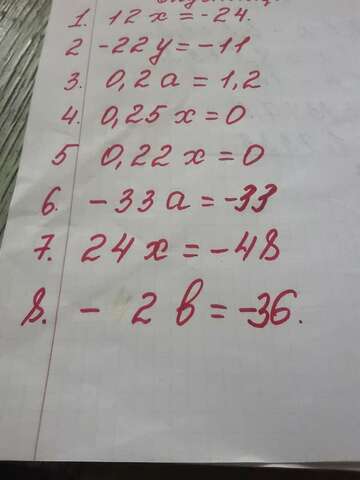 1. 12 x = -24.
2 -22 y = -11
3. 0,2 a = 1,2
4. 0,25 x = 0
5 0,22 x = 0
6. -33 a = -33
7. 24 x = -48
8. - 2 в = -36.